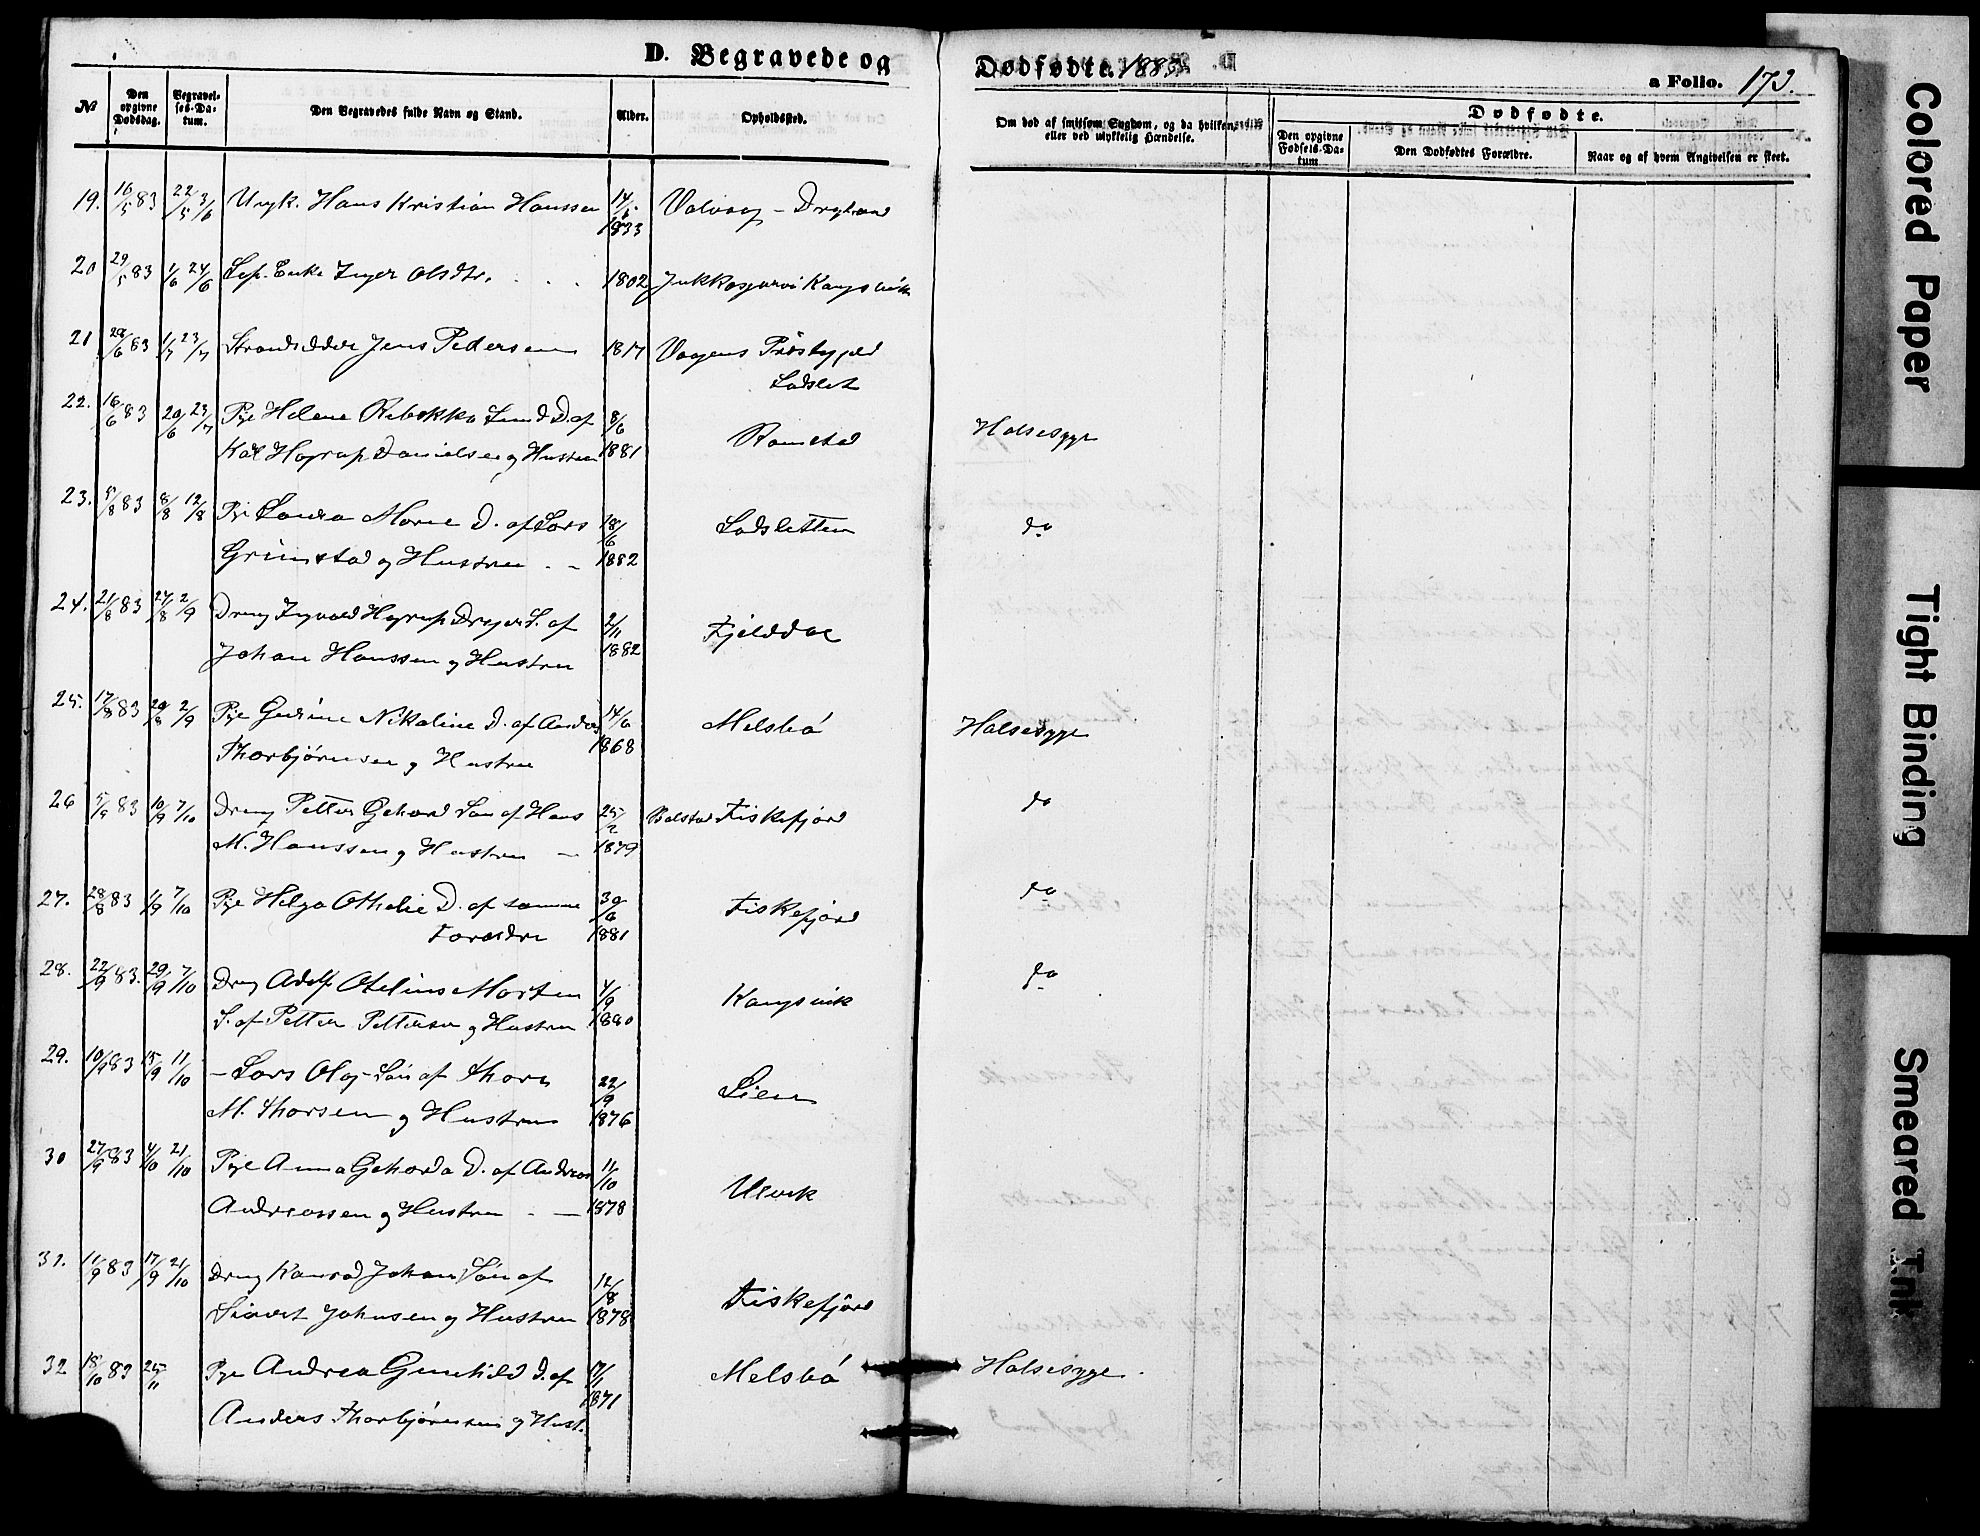 D. Begravede og Dødfødte. 1883.
a Folio. 173.
№
Den opgivne Dødsdag.
Begravelses-Datum.
Den Begravedes fulde Navn og Stand.
Alder.
Opholdssted.
Om død af smitsom Sygdom, og da hvilken, eller ved ulykkelig Hændelse.
Dødfødte.
Den opgivne Fødsels-Datum
Den Dødfødtes Forældre.
Naar og af hvem Angivelsen er skeet.
19. 16/5 83 22/5 3/6 Ungk. Hans Kristian Hanssen 14/6 1833
20 29/5 83 1/6 24/6 Lap. Enke Inger Olsdtr. 1802 Jukkasjarvi Kangsvik
21 29/6 83 1/7 23/7 Jens Pedersen 1817 Vagens Præstegjeld
Ladslet
22. 16/6 83 20/6 23/7 Pige Helene Rebekka Lund D. af 8/6
Karl Hagrup Danielsen og Hustru 1881 Ramstad Halsesyge
23. 5/8 83 8/8 12/8 Pige Laura Marie D. af Lars 18/6
Grimstad og Hustru 1882 Ladsletten do
24. 21/8 83 27/8 2/9 Dreng Ingvald Hagrup Dreyer S. af 2/11
Johan Hanssen og Hustru 1882 Fjelddal
25. 17/8 83 20/8 2/9 Pige Gurine Nikoline D. af Anders 14/6
Thorbjørnsen og Hustru 1868 Melsbø Halsesyge
26 5/9 83 10/9 7/10 Dreng Petter Gehard Søn af Hans 25/2
M. Hanssen og Hustru 1879 Balstad Fiskefjord do
27. 28/8 83 1/9 7/10 Pige Helga Othelie D. af samme 30/6
Forældre 1881 Fiskefjord do
28. 22/9 83. 29/9 7/10 Dreng Adolf Otelius Morten 4/9
S. af Petter Pettersen og Hustru 1880 Kangsvik do
29. 10/9 83 15/9 11/10 – Lars Olaj Søn af Thore 22/9
M. Thorsen og Hustru 1876 Lien
30 27/9 83 4/10 21/10 Pige Anna Geharda D. af Andreas 11/10
Andreassen og Hustru 1878 Ulvik
31. 11/9 83 17/9 21/10 Dreng Konrad Johan Søn af 12/8
Sivert Johnsen og Hustru 1878 Fiskefjord
32 18/10 83 25/11 Pige Andrea Gunhild D. af 17/1
Anders Thorbjørnsen og Hust. 1871 Melsbø Halsesyge.
Colored Paper
Tight Binding
Smeared Ink